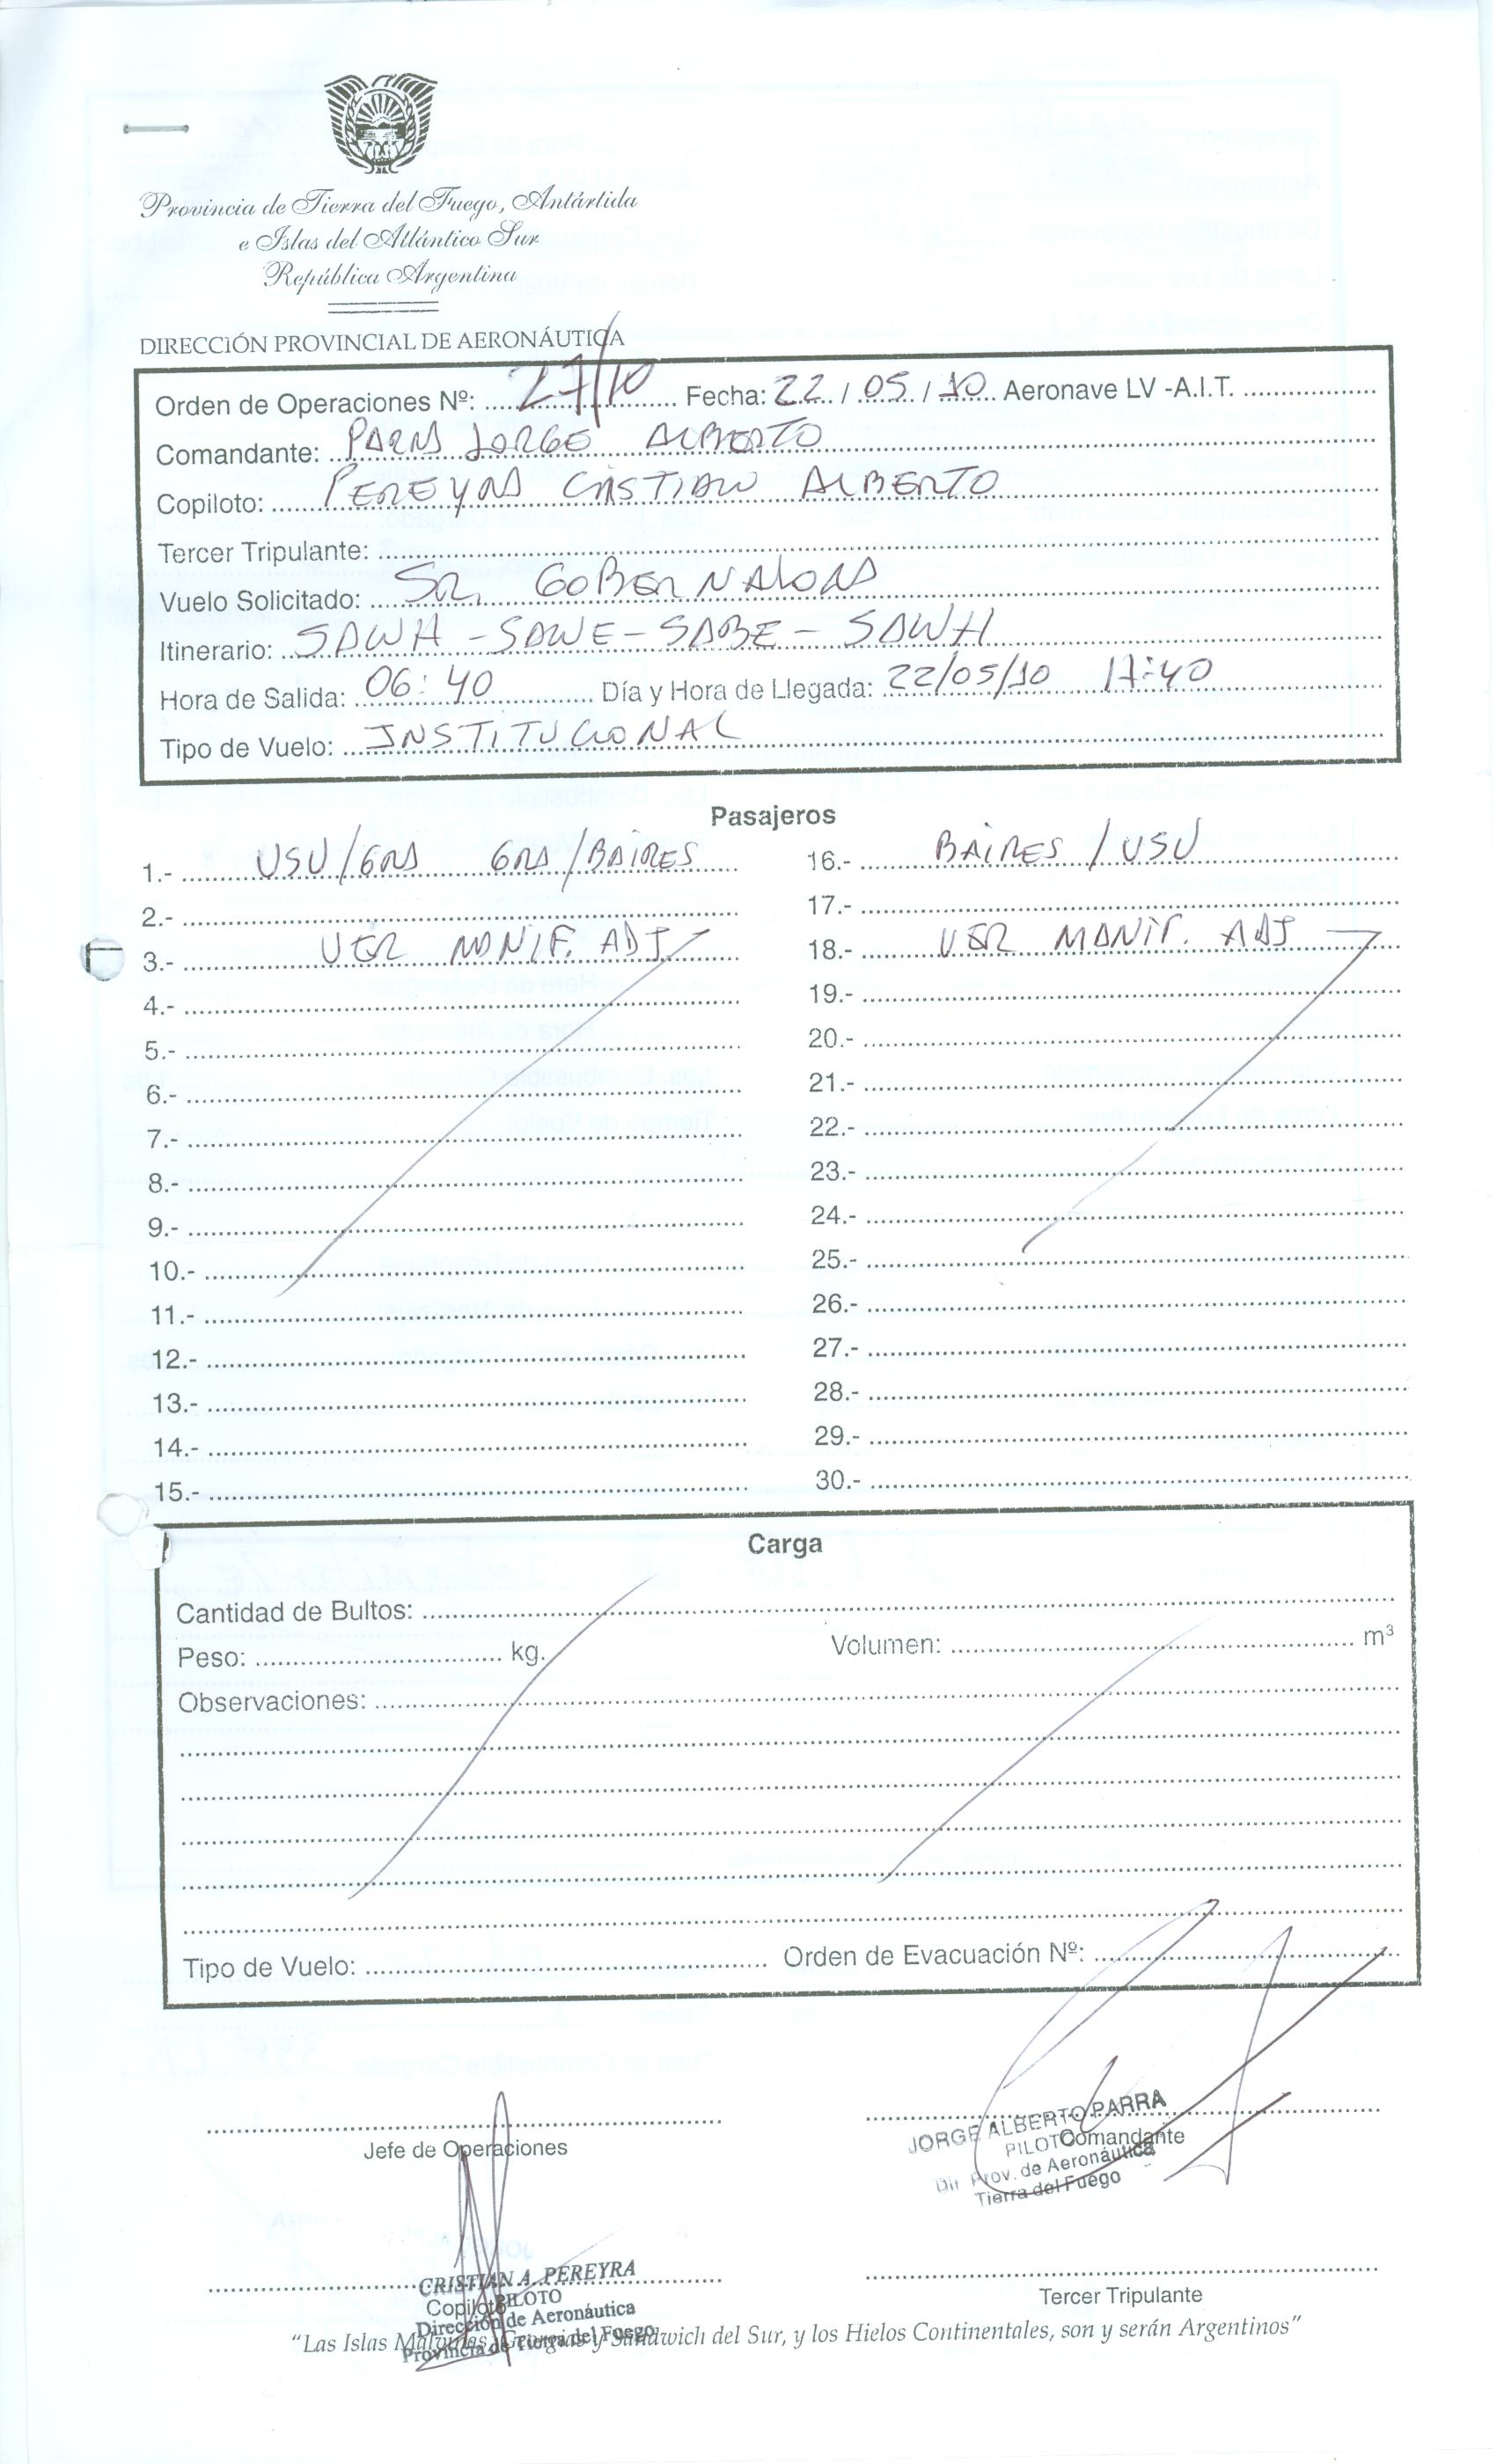 Provincia de Tierra del Fuego, Antártida
e Islas del Atlántico Sur
República Argentina
DIRECCIÓN PROVINCIAL DE AERONÁUTICA
Orden de Operaciones Nº: 27/10 Fecha: 22 / 05 / 10 Aeronave LV -A.I.T.
Comandante: PARRA JORGE ALBERTO
Copiloto: PEREYRA CRISTIAN ALBERTO
Tercer Tripulante:
Vuelo Solicitado: SR. GOBERNADORA
Itinerario: SAWH - SAWE - SABE - SAWH
Hora de Salida: 06:40 Día y Hora de Llegada: 22/05/10 17:40
Tipo de Vuelo: INSTITUCIONAL
Pasajeros
1.- USU/GRA GRA/BAIRES
2.-
3.- VER MANIF. ADJ
4.-
5.-
6.-
7.-
8.-
9.-
10.-
11.-
12.-
13.-
14.-
15.-
16.- BAIRES / USU
17.-
18.- VER MANIF. ADJ
19.-
20.-
21.-
22.-
23.-
24.-
25.-
26.-
27.-
28.-
29.-
30.-
Carga
Cantidad de Bultos:
Peso: kg. Volumen: m³
Observaciones:
Tipo de Vuelo: Orden de Evacuación Nº:
Jefe de Operaciones
Comandante
JORGE ALBERTO PARRA
PILOTO
Dir. Prov. de Aeronáutica
Tierra del Fuego
CRISTIAN A. PEREYRA
PILOTO
Copiloto
Dirección de Aeronáutica
Provincia de Tierra del Fuego
Tercer Tripulante
"Las Islas Malvinas, Georgias y Sandwich del Sur, y los Hielos Continentales, son y serán Argentinos"